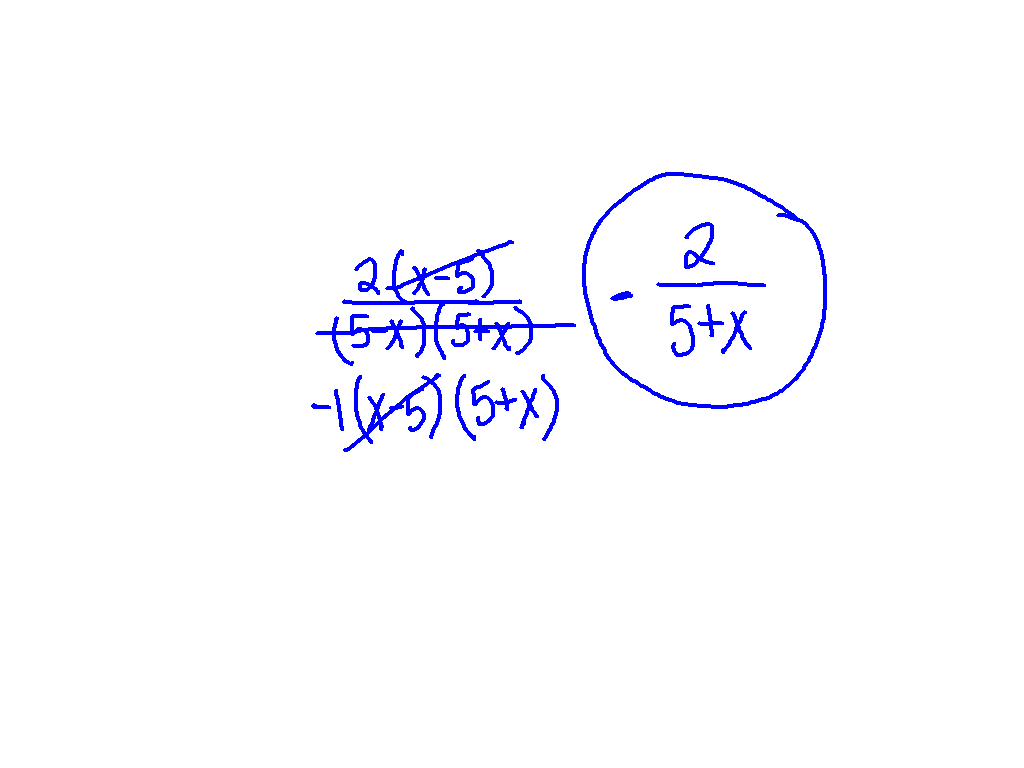 2(x-5)
(5-x)(5+x)
-1(x-5)(5+x)
- 2
5+x